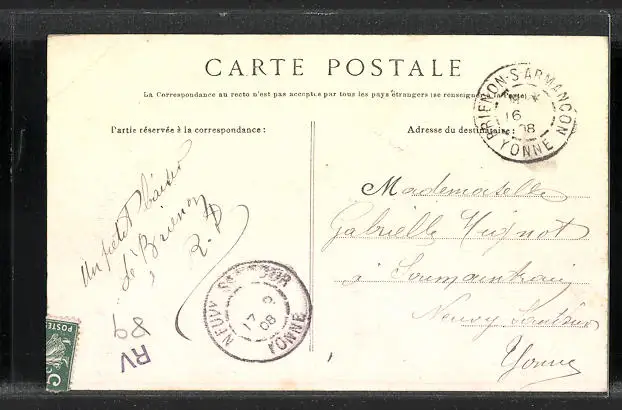 CARTE POSTALE
La Correspondance au recto n'est pas acceptée par tous les pays étrangers (se renseigner à la Poste)
Partie réservée à la correspondance :
Adresse du destinataire :
BRIENON-S-ARMANÇON
16
08
YONNE
un petit baiser
de Brienon
Mademoiselle
Gabrielle Mignot
à Soumaintrain
Neuvy Sautour
Yonne
NEUVY SAUTOUR
17
08
YONNE
RV
89
POSTES